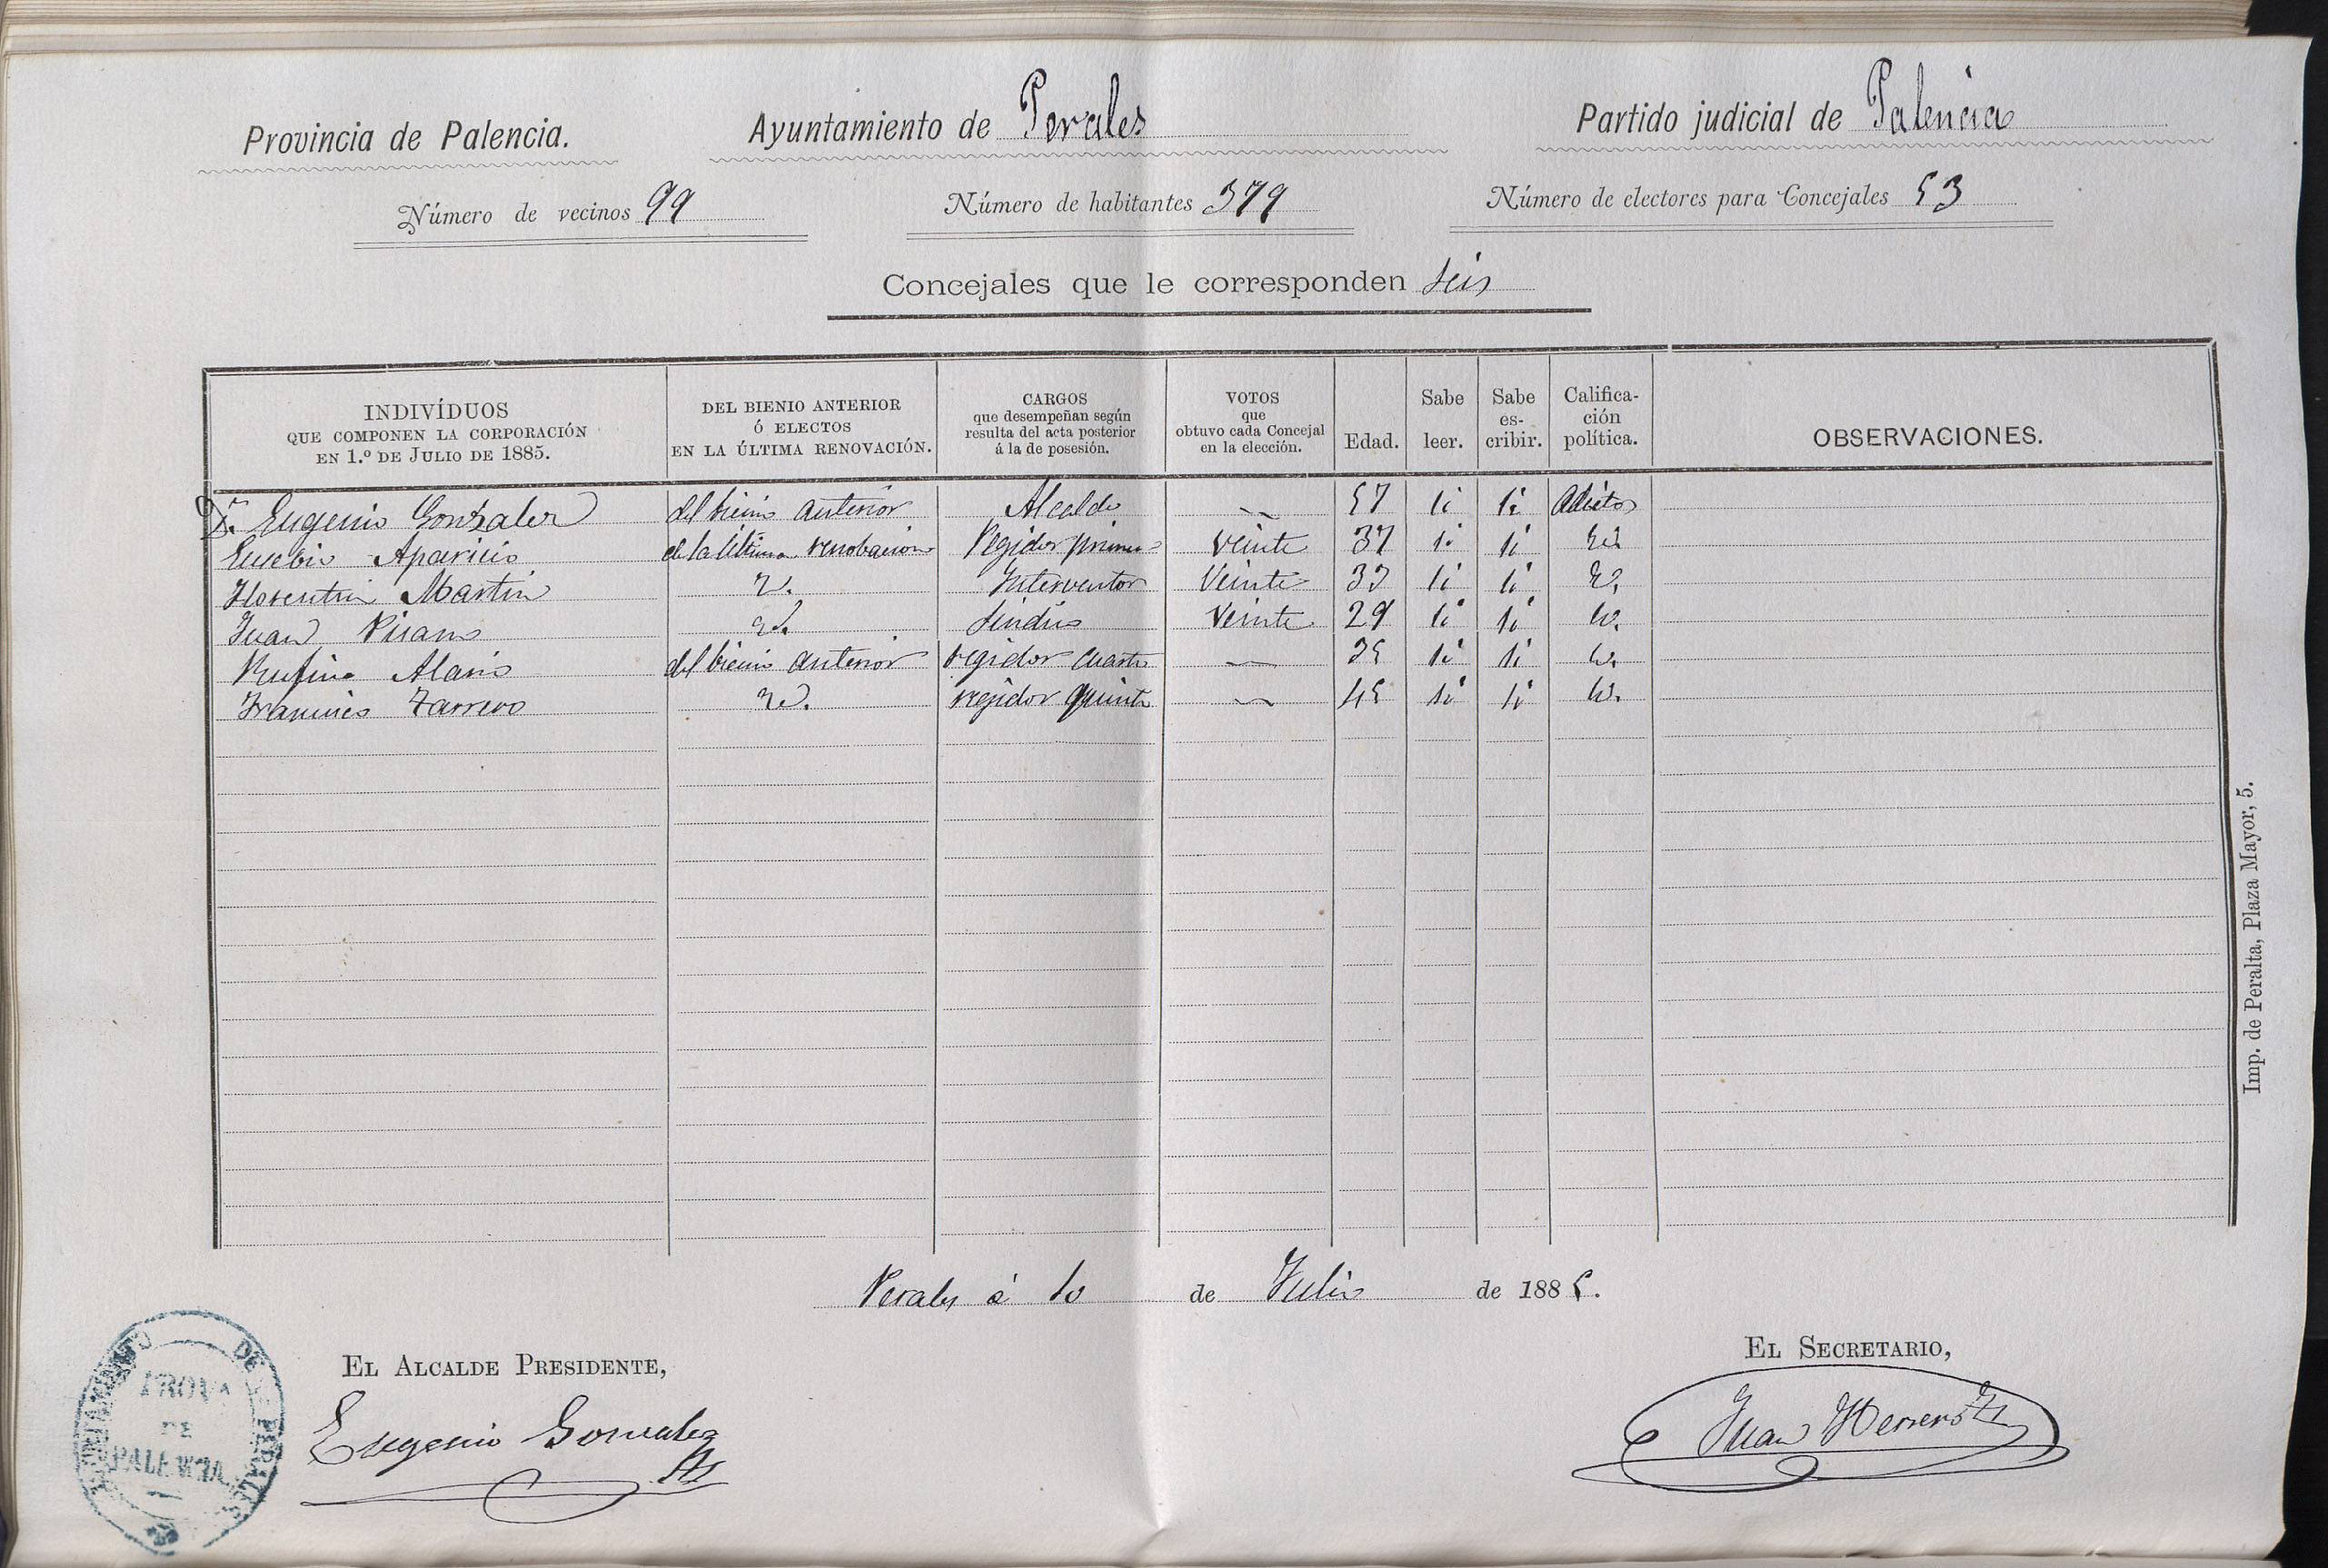 Provincia de Palencia. Ayuntamiento de Perales Partido judicial de Palencia
Número de vecinos 99 Número de habitantes 379 Número de electores para Concejales 53
Concejales que le corresponden seis
INDIVÍDUOS QUE COMPONEN LA CORPORACIÓN EN 1.º DE JULIO DE 1885. DEL BIENIO ANTERIOR Ó ELECTOS EN LA ÚLTIMA RENOVACIÓN. CARGOS que desempeñan según resulta del acta posterior á la de posesión. VOTOS que obtuvo cada Concejal en la elección. Edad. Sabe leer. Sabe es- cribir. Califica- ción política. OBSERVACIONES.
Dn. Eugenio Gonzalez del bienio anterior Alcalde — 57 si si Adicto
Eusebio Aparicio de la última renobacion Regidor primero veinte 37 si si id.
Florentin Martin id. Interventor Veinte si si id.
Juan id. Sindico Veinte 29 si si id.
Rufino del bienio anterior regidor cuarto — 35 si si id.
Francisco Tarrero id. regidor quinto — 45 si si id.
Perales á 10 de Julio de 1885.
EL ALCALDE PRESIDENTE, EL SECRETARIO,
Eugenio Gonzalez Juan Herrero
AYUNTAMIENTO DE PERALES
PROVA
DE
PALENCIA
Imp. de Peralta, Plaza Mayor, 5.